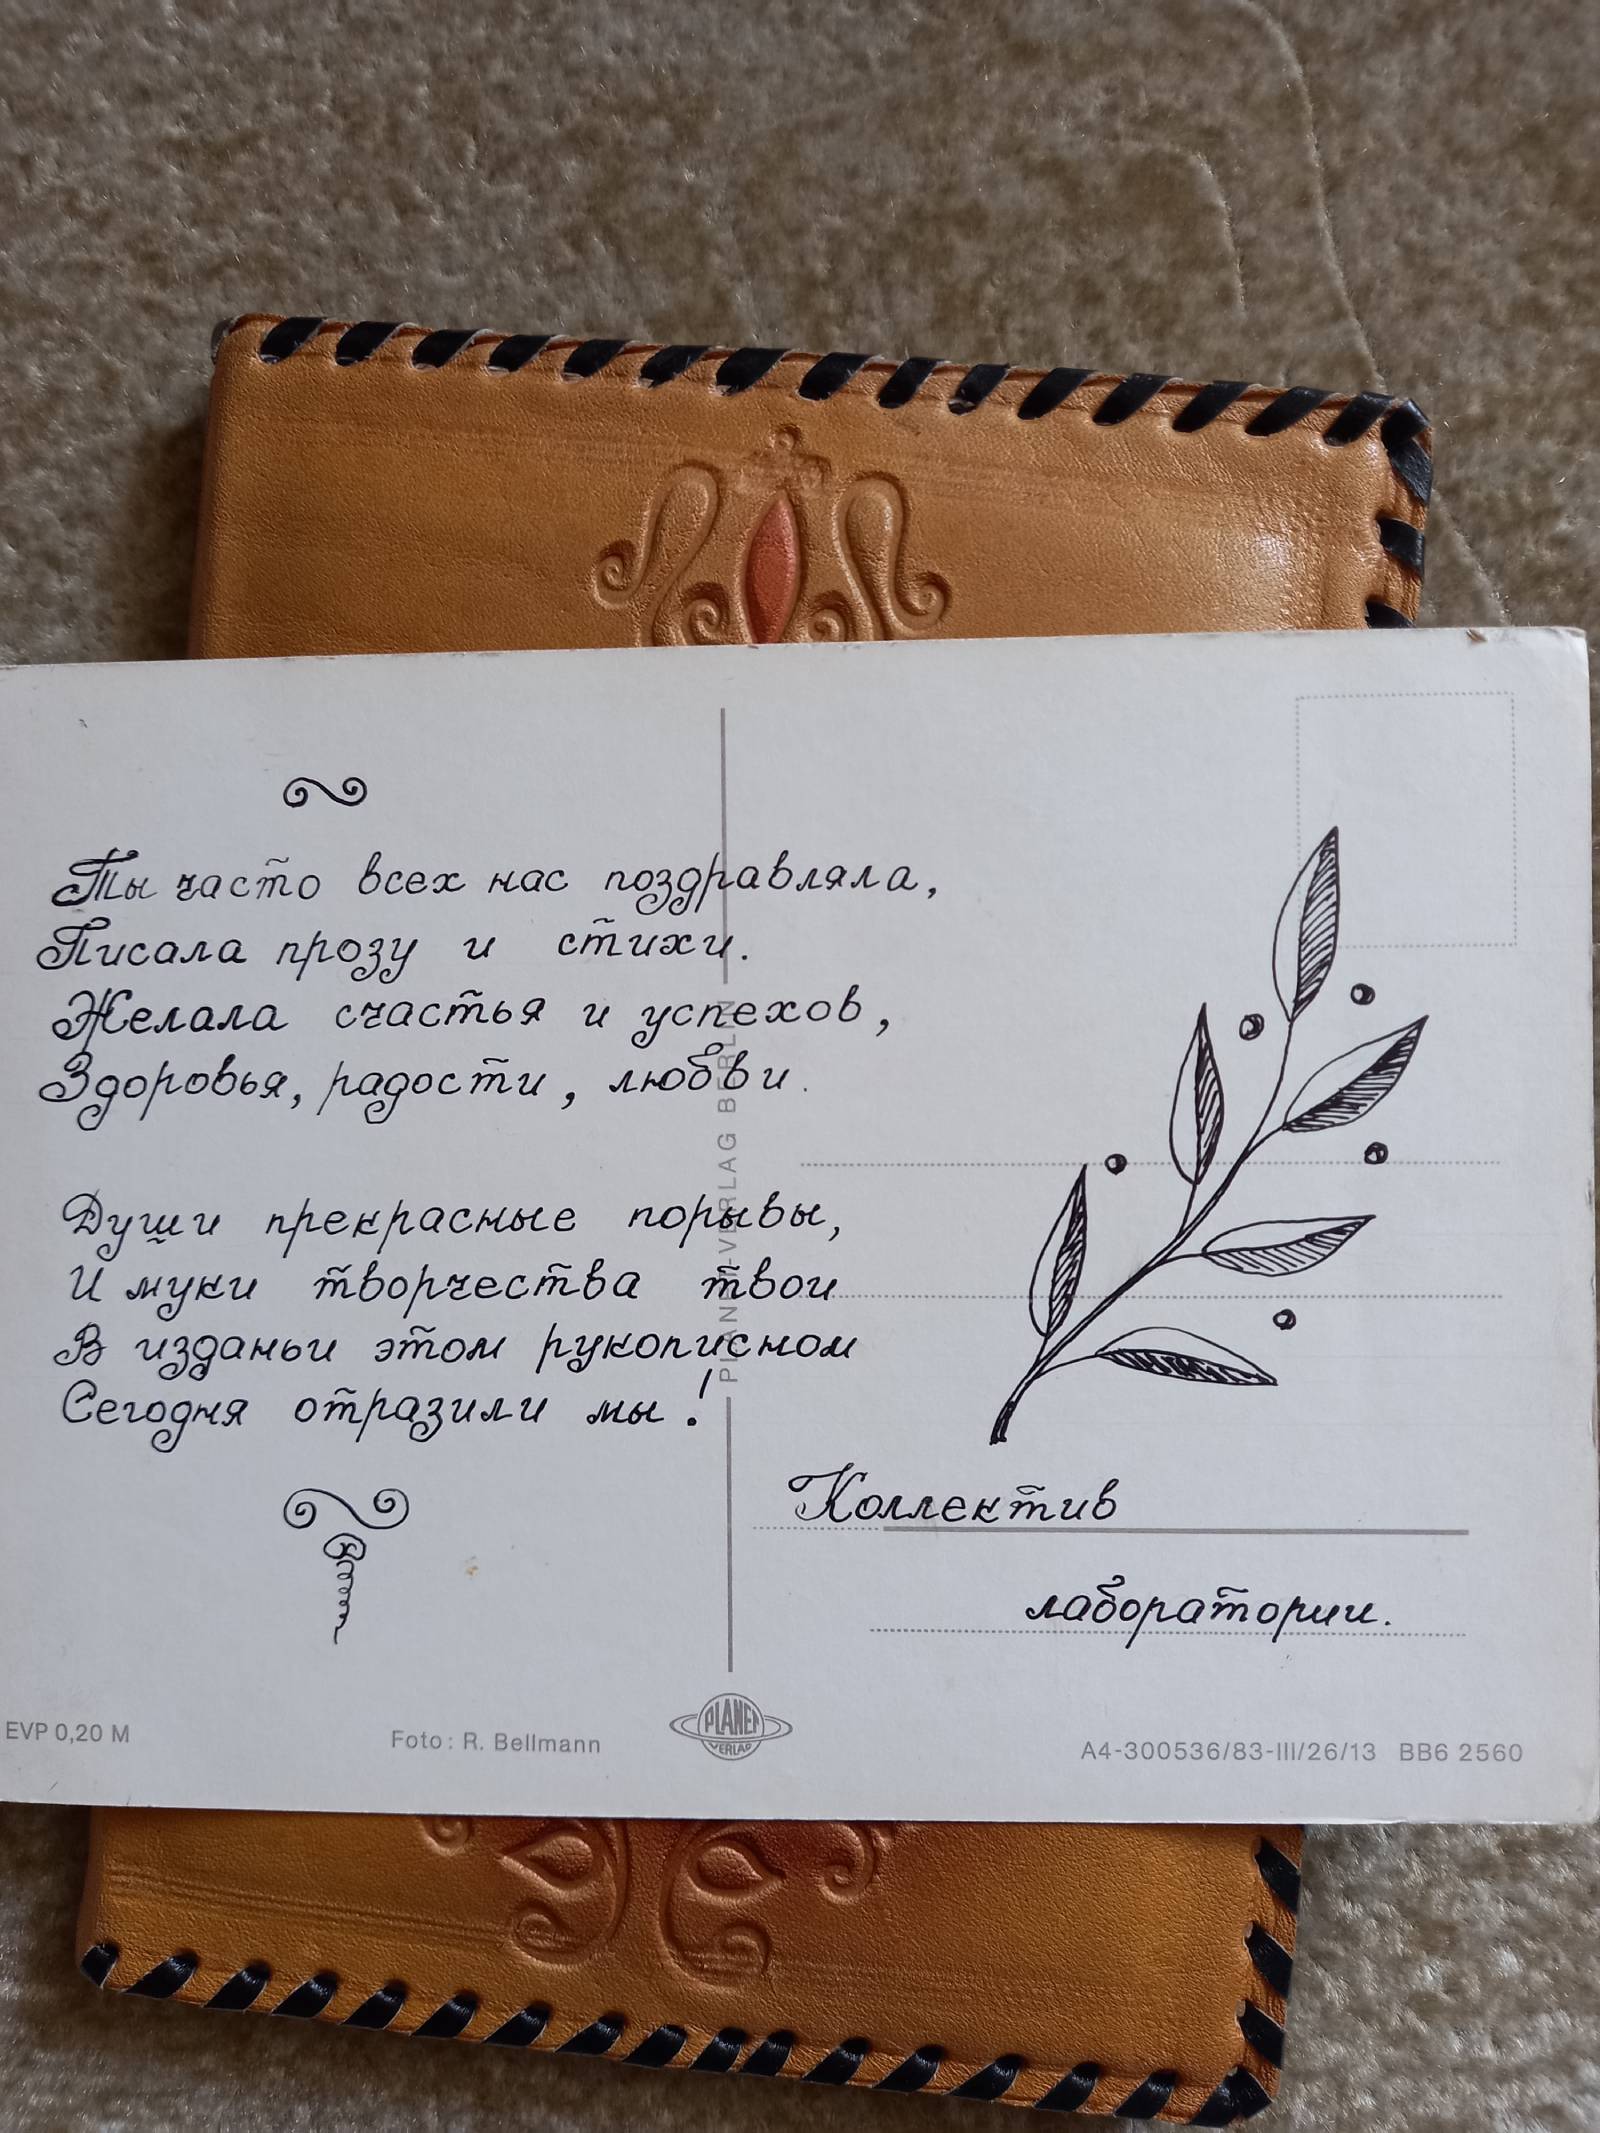 Ты часто всех нас поздравляла,
Писала прозу и стихи.
Желала счастья и успехов,
Здоровья, радости, любви.
Души прекрасные порывы,
И муки творчества твои
В изданьи этом рукописном
Сегодня отразили мы!
Коллектив
лаборатории.
PLANET-VERLAG BERLIN
EVP 0,20 M
Foto: R. Bellmann
PLANET
VERLAG
A4-300536/83-III/26/13 BB6 2560